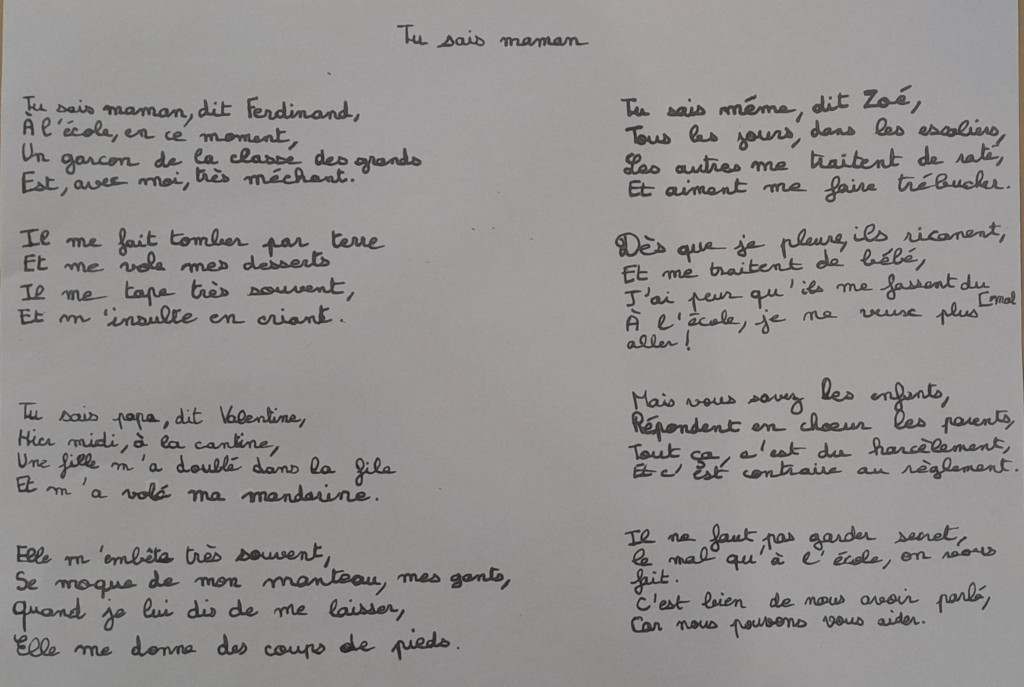 Tu sais maman
Tu sais maman, dit Ferdinand,
À l'école, en ce moment,
Un garcon de la classe des grands
Est, avec moi, très méchant.
Il me fait tomber par terre
Et me vole mes desserts
Il me tape très souvent,
Et m'insulte en criant.
Tu sais papa, dit Valentine,
Hier midi, à la cantine,
Une fille m'a doublé dans la file
Et m'a volé ma mandarine.
Elle m'embête très souvent,
Se moque de mon manteau, mes gants,
Quand je lui dis de me laisser,
Elle me donne des coups de pieds.
Tu sais mémé, dit Zoé,
Tous les jours, dans les escaliers,
Les autres me traitent de raté,
Et aiment me faire trébucher.
Dès que je pleure, ils ricanent,
Et me traitent de bébé,
J'ai peur qu'ils me fassent du
[mal
À l'école, je ne veux plus
aller !
Mais vous savez les enfants,
Répondent en choeur les parents,
Tout ça, c'est du harcèlement,
Et c'est contraire au règlement.
Il ne faut pas garder secret,
le mal qu'à l'école, on vous
fait.
C'est bien de nous avoir parlé,
Car nous pouvons vous aider.